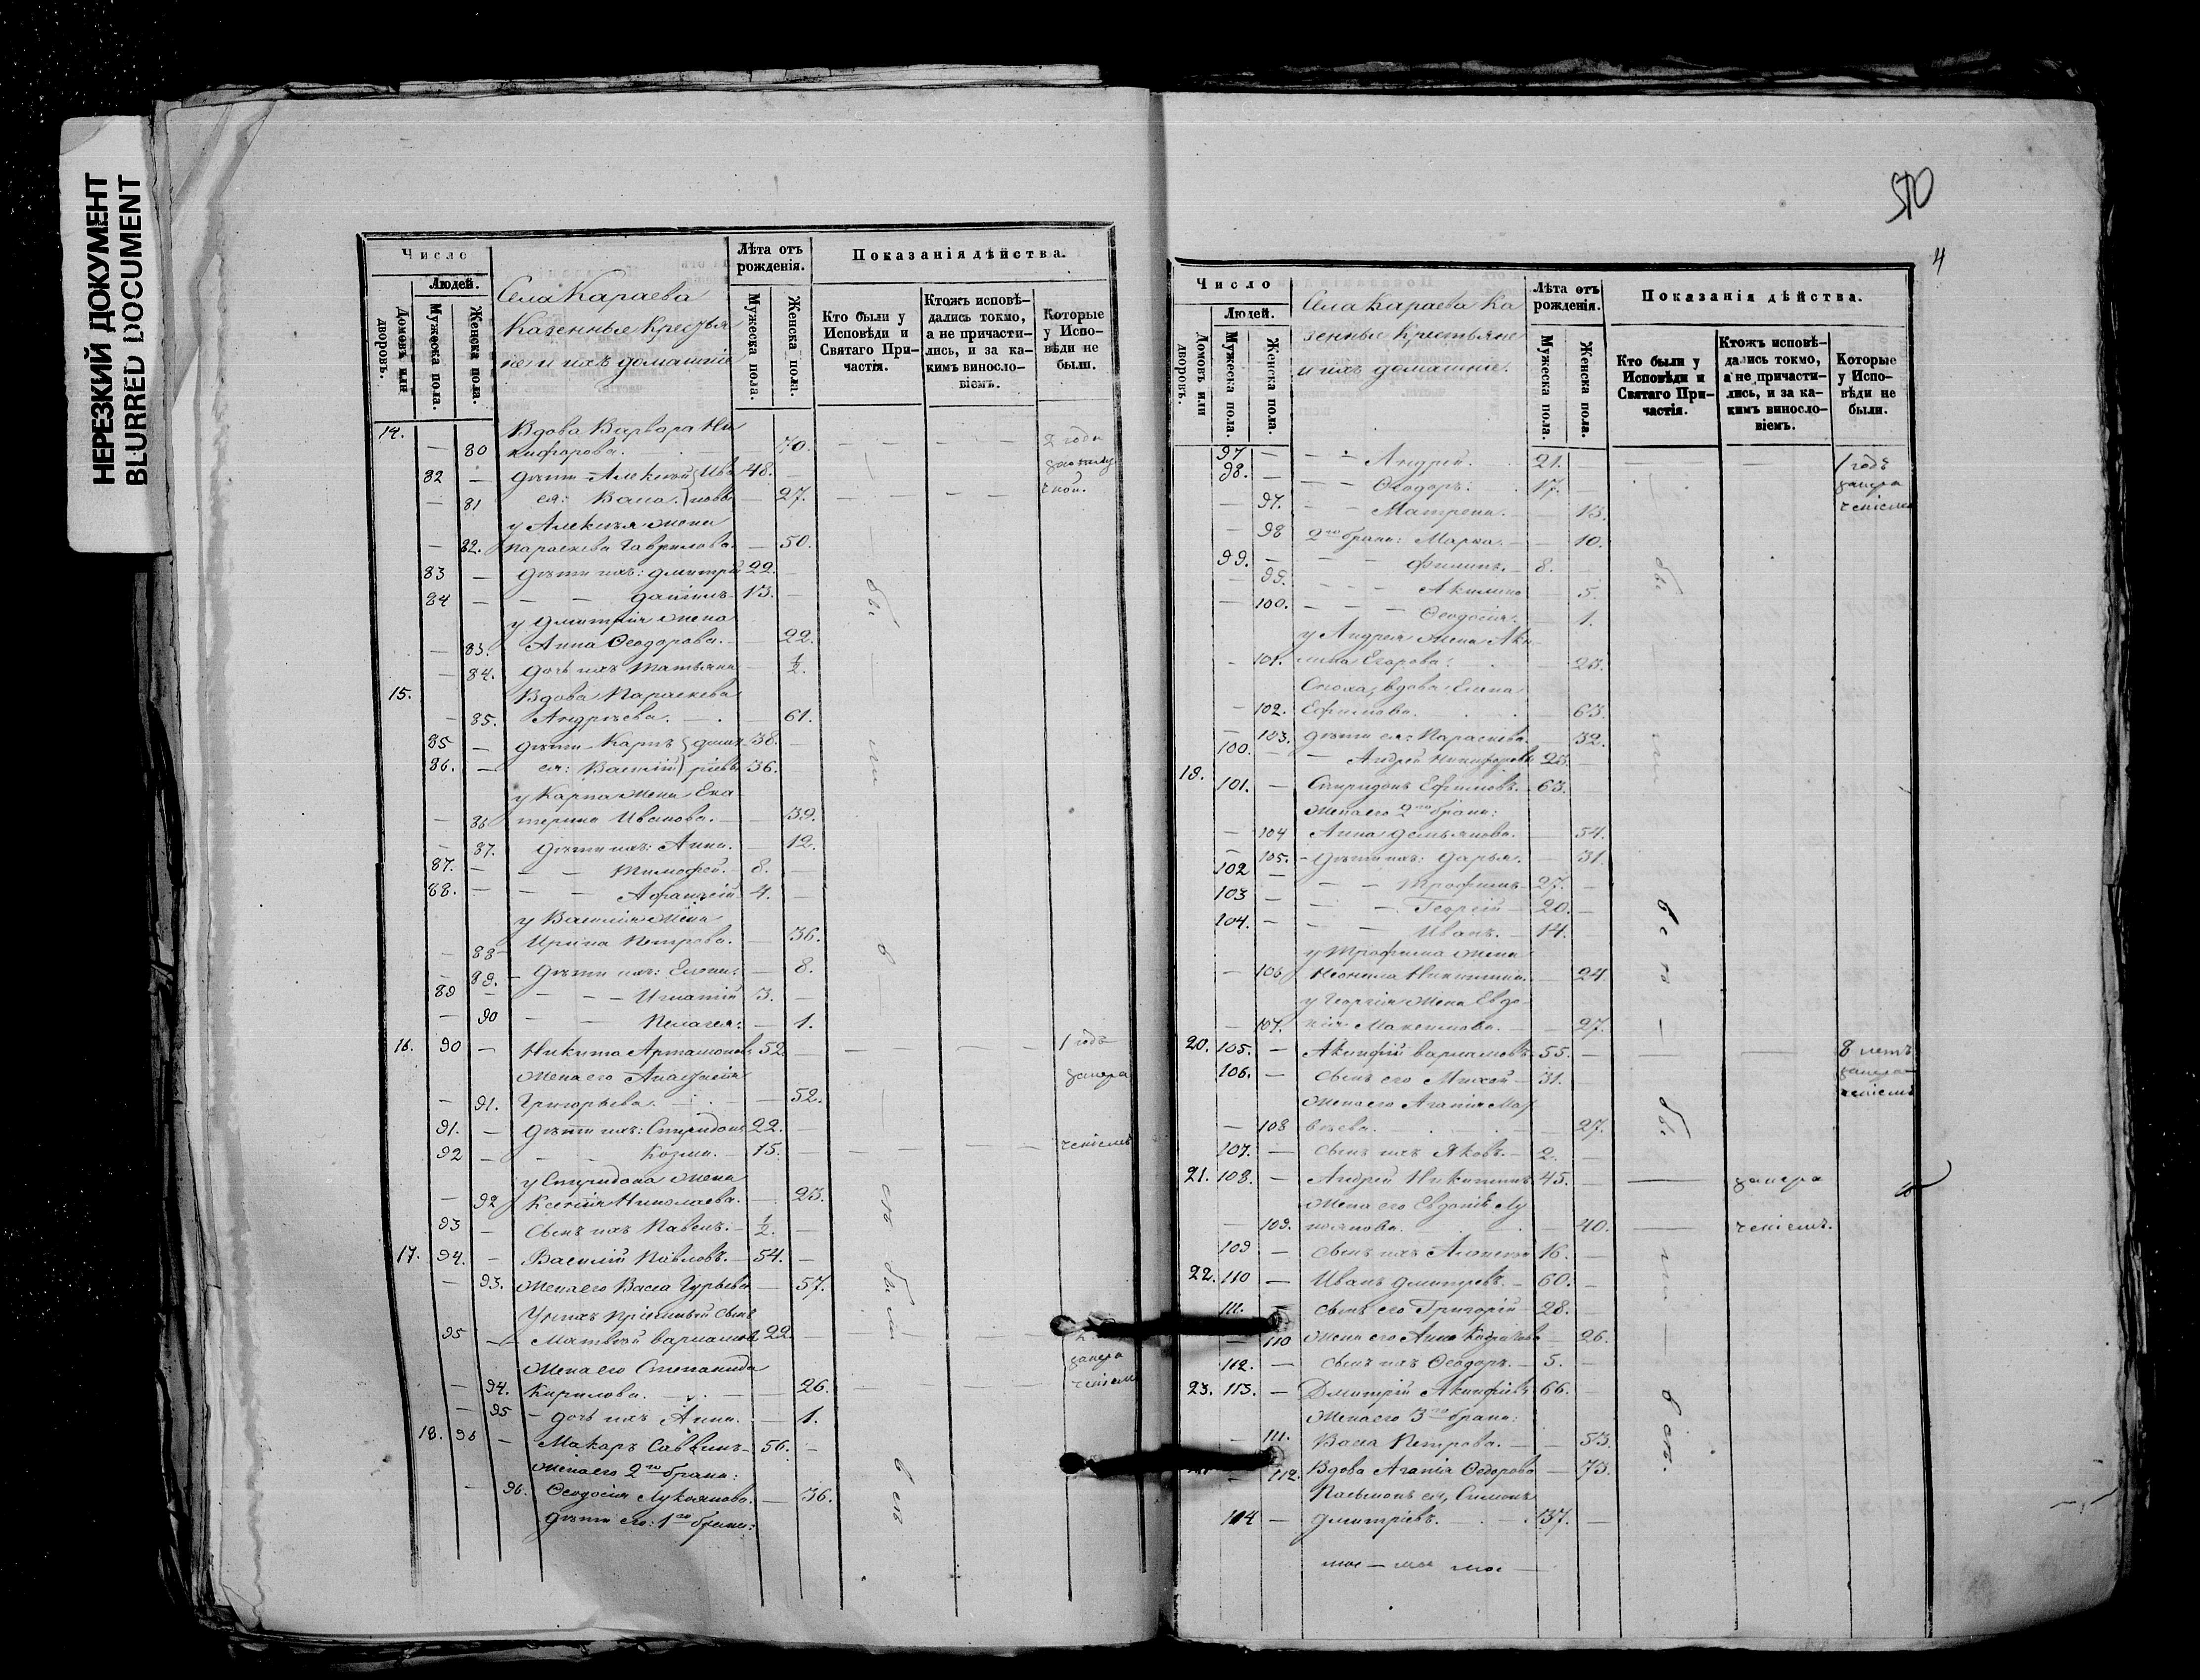 НЕРЕЗКИЙ ДОКУМЕНТ
BLURRED DOCUMENT
Число
Людей.
Домовъ или дворовъ.
Мужеска пола.
Женска пола.
Села Караева
Казенные Крестья
не и ихъ домашніе
Лѣта отъ рожденія.
Мужеска пола.
Женска пола.
Показанія дѣйства.
Кто были у Исповѣди и Святаго Причастія.
Ктожъ исповѣдались токмо, а не причастились, и за какимъ винословіемъ.
Которые у Исповѣди не были.
14. Вдова Варвара Ни
— 80 кифорова. 70. — — — — 2 года
82 — дѣти Алексѣй Ива 48. —
— 81 ея: Васса. новы — 27. — — — —
у Алексѣя жена
— 82. Параскева Гаврилова. — 50.
83 — дѣти ихъ: Дмитрій 22. —
84 — — — Даніилъ 13. —
у Дмитрія жена
— 83. Анна Ѳеодорова. — 22.
— 84. дочь ихъ Татьяна — ½.
15. Вдова Параскева
— 85. Андрѣева. — . — 61.
85 — дѣти Карпъ Дмит 38. —
86. — ея: Василій ріевы 36.
у Карпа жена Ека
— 86 терина Иванова. — — 39.
— 87. дѣти ихъ: Анна. — 12.
87. — — — Тимофей. 8. —
88. — — — Афанасій 4. —
у Василія жена
— 88 Ирина Петрова. — 36.
— 89. — дѣти ихъ: Елена. — 8.
89 — — — — Игнатій 3. —
— 90 — — Пелагея: — 1.
16. 90 — Никита Артамоновъ 52. — — — — — 1 годъ
жена его Анастасія запера
— 91. Григорьева. — 52.
91. — дѣти ихъ: Спиридонъ 22. —
92 — — — Козма. — 15. — — — — — чтеніемъ
у Спиридона жена
— 92 Ксенія Николаева. — 23.
93 — сынъ ихъ Павелъ: — ½. —
17. 94. — Василій Павловъ. — 54. —
— 93. жена его Васса Гурьева — 57.
У нихъ пріемный сынъ
95 — Матвей Варламовъ 22. —
жена его Степанида запера
— 94. Кирилова. — . — — 26. — —
— 95 — дочь ихъ Анна. — 1.
18. 96 — Макаръ Саввинъ — 56. —
жена его 2го брака:
— 96. Ѳеодосія Лукоянова. — 36.
дѣти его: 1го брака:
были
въ
510
4
Число
Людей.
Домовъ или дворовъ.
Мужеска пола.
Женска пола.
Села Караева Ка
зенные Крестьяне
и ихъ домашніе.
Лѣта отъ рожденія.
Мужеска пола.
Женска пола.
Показанія дѣйства.
Кто были у Исповѣди и Святаго Причастія.
Ктожъ исповѣдались токмо, а не причастились, и за какимъ винословіемъ.
Которые у Исповѣди не были.
97 — — — Андрей. 21. — — — — 1 годъ
98. — — Ѳеодоръ: 17. — запера
— 97. — — Матрена. — 13. чтеніемъ
— 98 2го брака: Марѳа. — — 10.
99. — — Филиппъ. — 8. —
— 99. — — — Акилина — 5.
— 100. — — — Ѳеодосія. — 1.
у Андрея жена Аки
— 101. лина Егорова. — 23.
Сноха, вдова Елена
— 102. Ефимова. — 63.
— 103. дѣти ея: Параскева. — 32.
100. — — Андрей Никифоровъ 23. —
19. 101. — Спиридонъ Ефимовъ. 63. —
жена его 2го брака:
— 104 Анна Демьянова. — 54.
— 105. — дѣти ихъ: Дарья. — 31.
102 — — — Трофимъ 27. —
103 — — — Георгій 20. —
104. — — — Иванъ. — 14. —
у Трофима жена
— 106 Неонила Никитина. — 24.
у Георгія жена Евдо
— 107. кія Максимова. — — 27.
20. 105. — Акинфій Варламовъ 55. — — — 8 летъ
106. — сынъ его Михей — 31. — запера
жена его Агапія Мат чтеніемъ
— 108 веева. 27.
107. — сынъ ихъ Яковъ. — 2. —
21. 108. — Андрей Никитинъ 45. — — запера
жена его Евдокія Лу
— 109. коянова. — 40. — чтеніемъ.
109 — сынъ ихъ 16. —
22. 110 — Иванъ Дмитріевъ. — 60. —
111. — сынъ его Григорій — 28. —
— 110 жена его Анна — 26.
112. — сынъ ихъ Ѳеодоръ. — 5. —
23. 113. — Дмитрій Акинфіевъ 66. —
жена его 3го брака:
— 111. Васса Петрова. — — 53.
— 112. Вдова Агапія Ѳедорова — 73.
Пасынокъ ея, Симонъ
114 — Дмитріевъ. — . — . 37. —